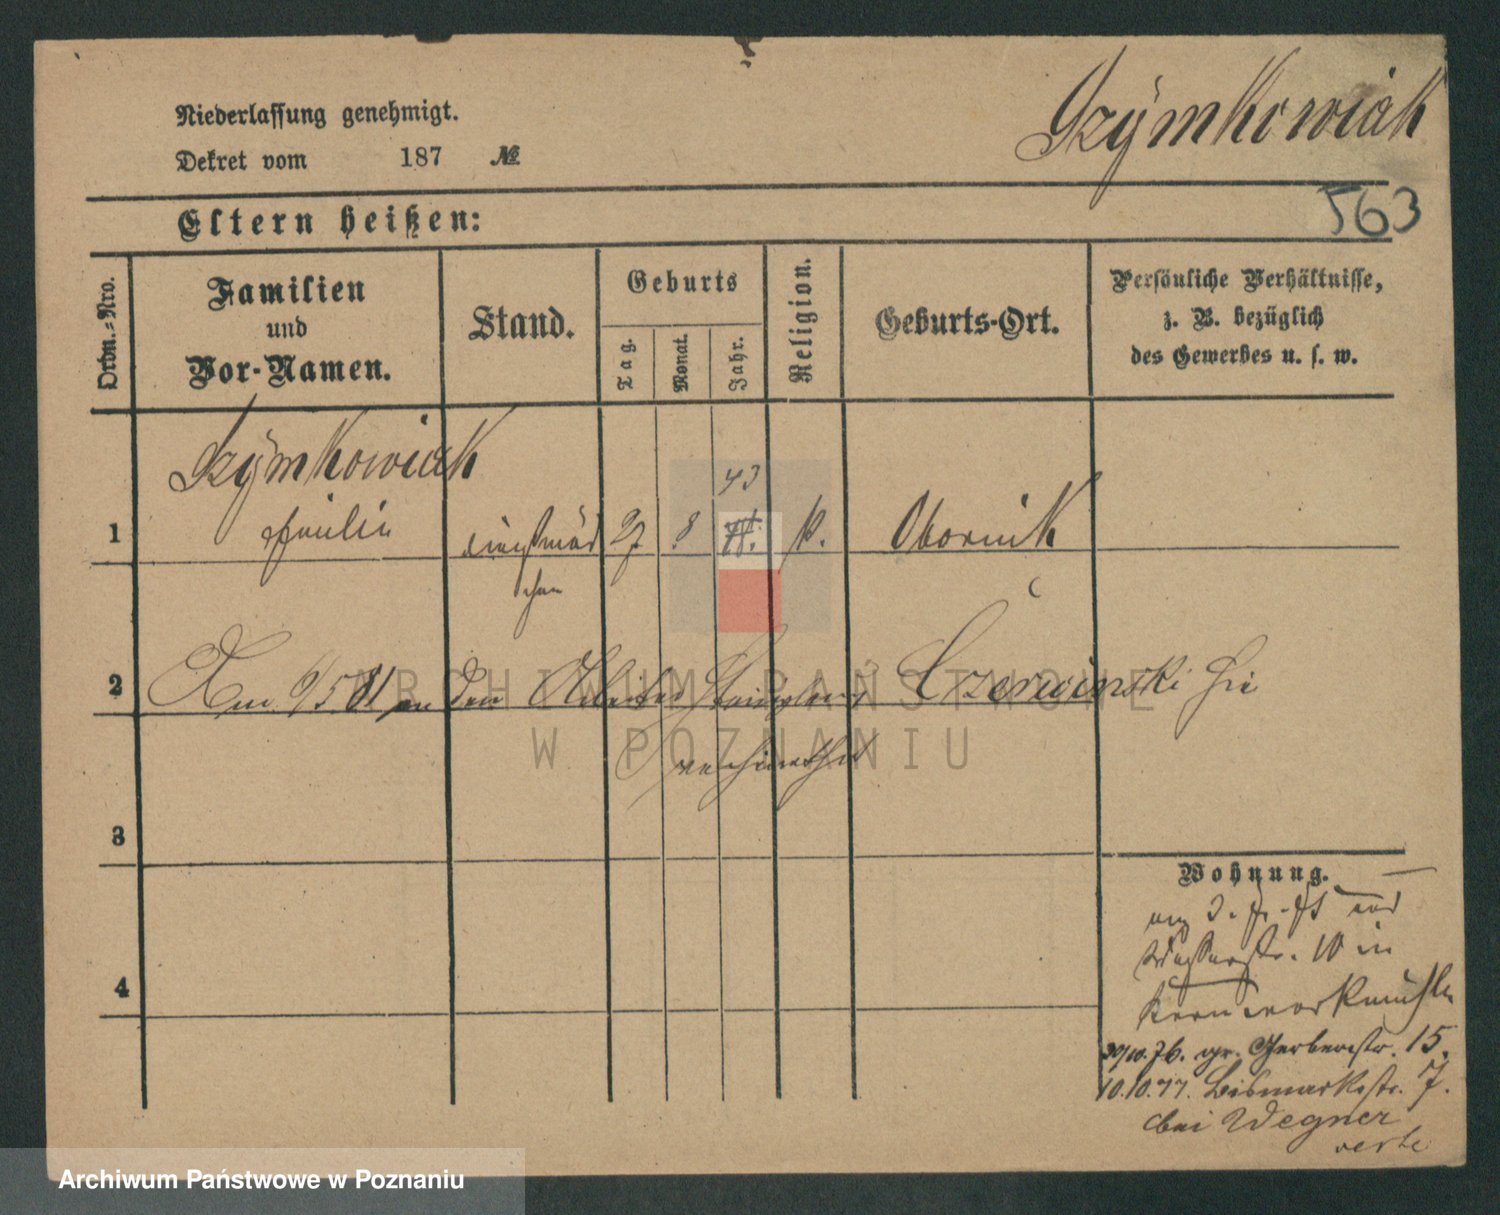 Szymkowiak
Niederlassung genehmigt.
Dekret vom 187 №
563
Eltern heißen:
Ordn.-Nro.
Familien
und
Vor-Namen.
Stand.
Geburts
Tag.
Monat.
Jahr.
Religion.
Geburts-Ort.
Persönliche Verhältnisse,
z. B. bezüglich
des Gewerbes u. s. w.
Szymkowiak
43
1 dienstmäd 27 8 k. Obornik
chen
2 Am 6/5 81 an den Arbeiter Czerwinski hie
verheirathet
3
Wohnung.
10 in
4
30/10. 76. gr. Gerberstr. 15.
10.10.77. Bismarkstr. 7.
bei Wegner
verte
ARCHIWUM PAŃSTWOWE
W POZNANIU
Archiwum Państwowe w Poznaniu